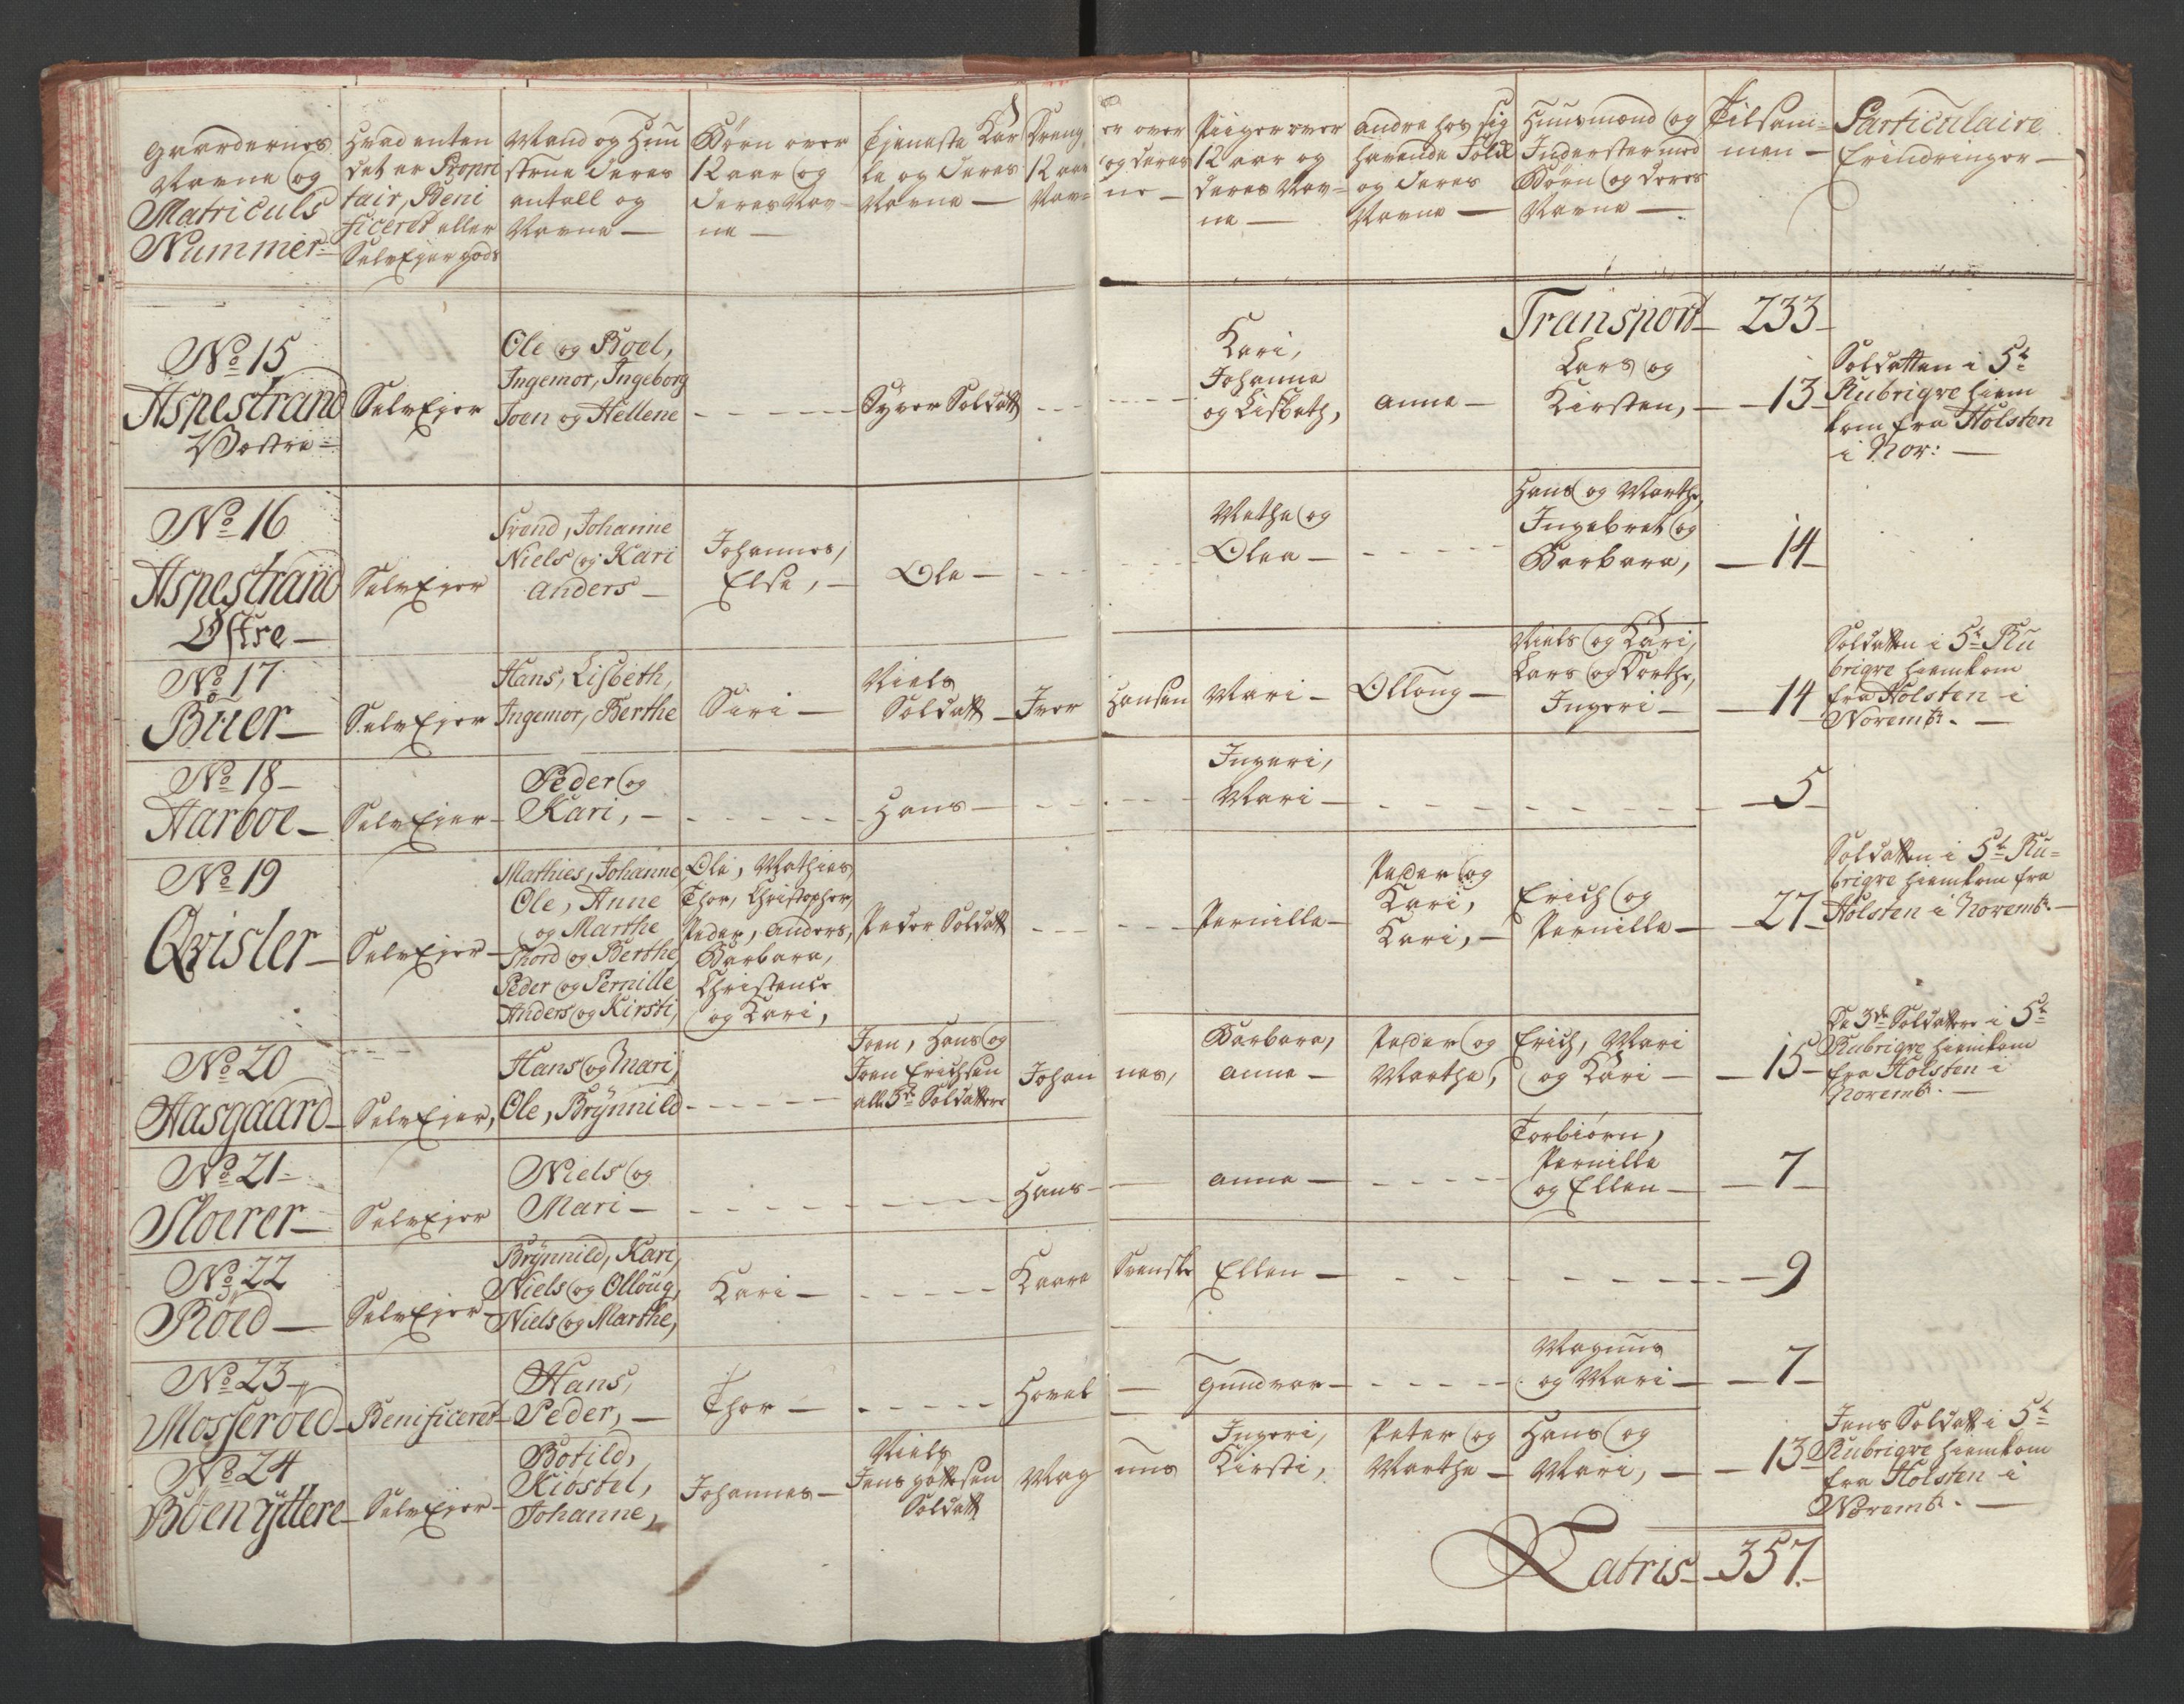 Gaardernes
Navne og
Matriculs
Nummer
Hvad enten
det er Propri
tair, Beni
ficeret eller
SelvEjer gods
Mand og Huu
struе deres
antall og
Navne —
Børn over
12 aar og
deres Nav-
ne —
Tjeneste Kar
le og deres
Navne —
Dreng
12 aar
Nav=
er over
og deres
ne —
Piiger over
12 aar og
deres Nav=
ne —
andre hos sig
havende Folk
og deres
Navne —
Huusmænd og
Inderster med
Børn og deres
Navne —
Tilsam=
men —
Particulaire
Erindringer —
Transport — 233 —
No 15
Aspestrand
Westre
SelvEjer
Ole og Boel,
Ingemor, Ingeborg
Joen og Hellene
Syver Soldatt
Kari,
Johanna
og Lisbeth,
Anne —
Lars og
Kirsten,
13
Soldatten i 5te
Rubriqve hiem
kom fra Holsten
i Nov: —
No 16
Aspestrand
Østre —
SelvEjer
Svend, Johanne
Niels og Kari
Anders —
Johannes,
Else, —
Ole —
Methe og
Olea —
Hans og Marthe,
Ingebret og
Barbara,
14
No 17
Buer —
SelvEjer
Hans, Lisbeth,
Ingemor, Berthe
Siri —
Niels
Soldatt —
Iver
Hansen
Mari —
Olloug —
Niels og Kari,
Lars og Dorthe,
Ingeri —
14
Soldatten i 5te Ru
brigve hiemkom
fra Holsten i
Novembr. —
No 18 —
Aarboe —
SelvEjer —
Peder og
Kari, —
Hans —
Ingeri,
Mari —
5
No 19
Qvisler —
SelvEjer —
Mathies, Johanne,
Ole, Anne
og Marthe
Thord og Berthe,
Peder og Pernille
Anders og Kirsti,
Ole, Mathias,
Thor, Christopher,
Peder, Anders,
Barbara,
Christence
og Kari,
Peder Soldatt
Pernilla —
Peder og
Kari,
Kari, —
Erich og
Pernilla —
27
Soldatten i 5te Ru=
brigve hiemkom fra
Holsten i Novembr. —
No 20
Aasgaard —
SelvEjer,
Hans og Mari,
Ole, Brynnild
Joen, Hans og
Joen Erichsen
alle 3de Soldattere
Johan
nes,
Barbara,
Anne —
Peder og
Marthe,
Erich, Mari
og Kari —
15
De 3de Soldattere i 5te
Rubrigve hiemkom
fra Holsten i
Novembr. —
No 21 —
Floerer —
SelvEjer
Niels og
Mari —
Hans —
Anne —
Torbiørn,
Pernilla
og Ellen —
7
No 22
Röed —
SelvEjer —
Brynnild, Kari,
Niels og Olloug,
Niels og Marthe,
Kari —
Kaare
Svenske
Ellen —
9
No 23
Mosseröed —
Benificeret —
Hans,
Peder, —
Thor —
Havel
Gundvor —
Magnus
og Mari —
7
No 24
Böen ÿttere —
SelvEjer —
Botild,
Kiostel,
Johanne,
Johannes —
Niels
Jens
Soldatt
Mag
nus
Ingeri,
Kirsti,
Peter og
Marthe —
Hans og
Mari, —
13
Jens Soldatt i 5te
Rubrigve hiemkom
fra Holsten i
Novembr. —
Latris — 357. —